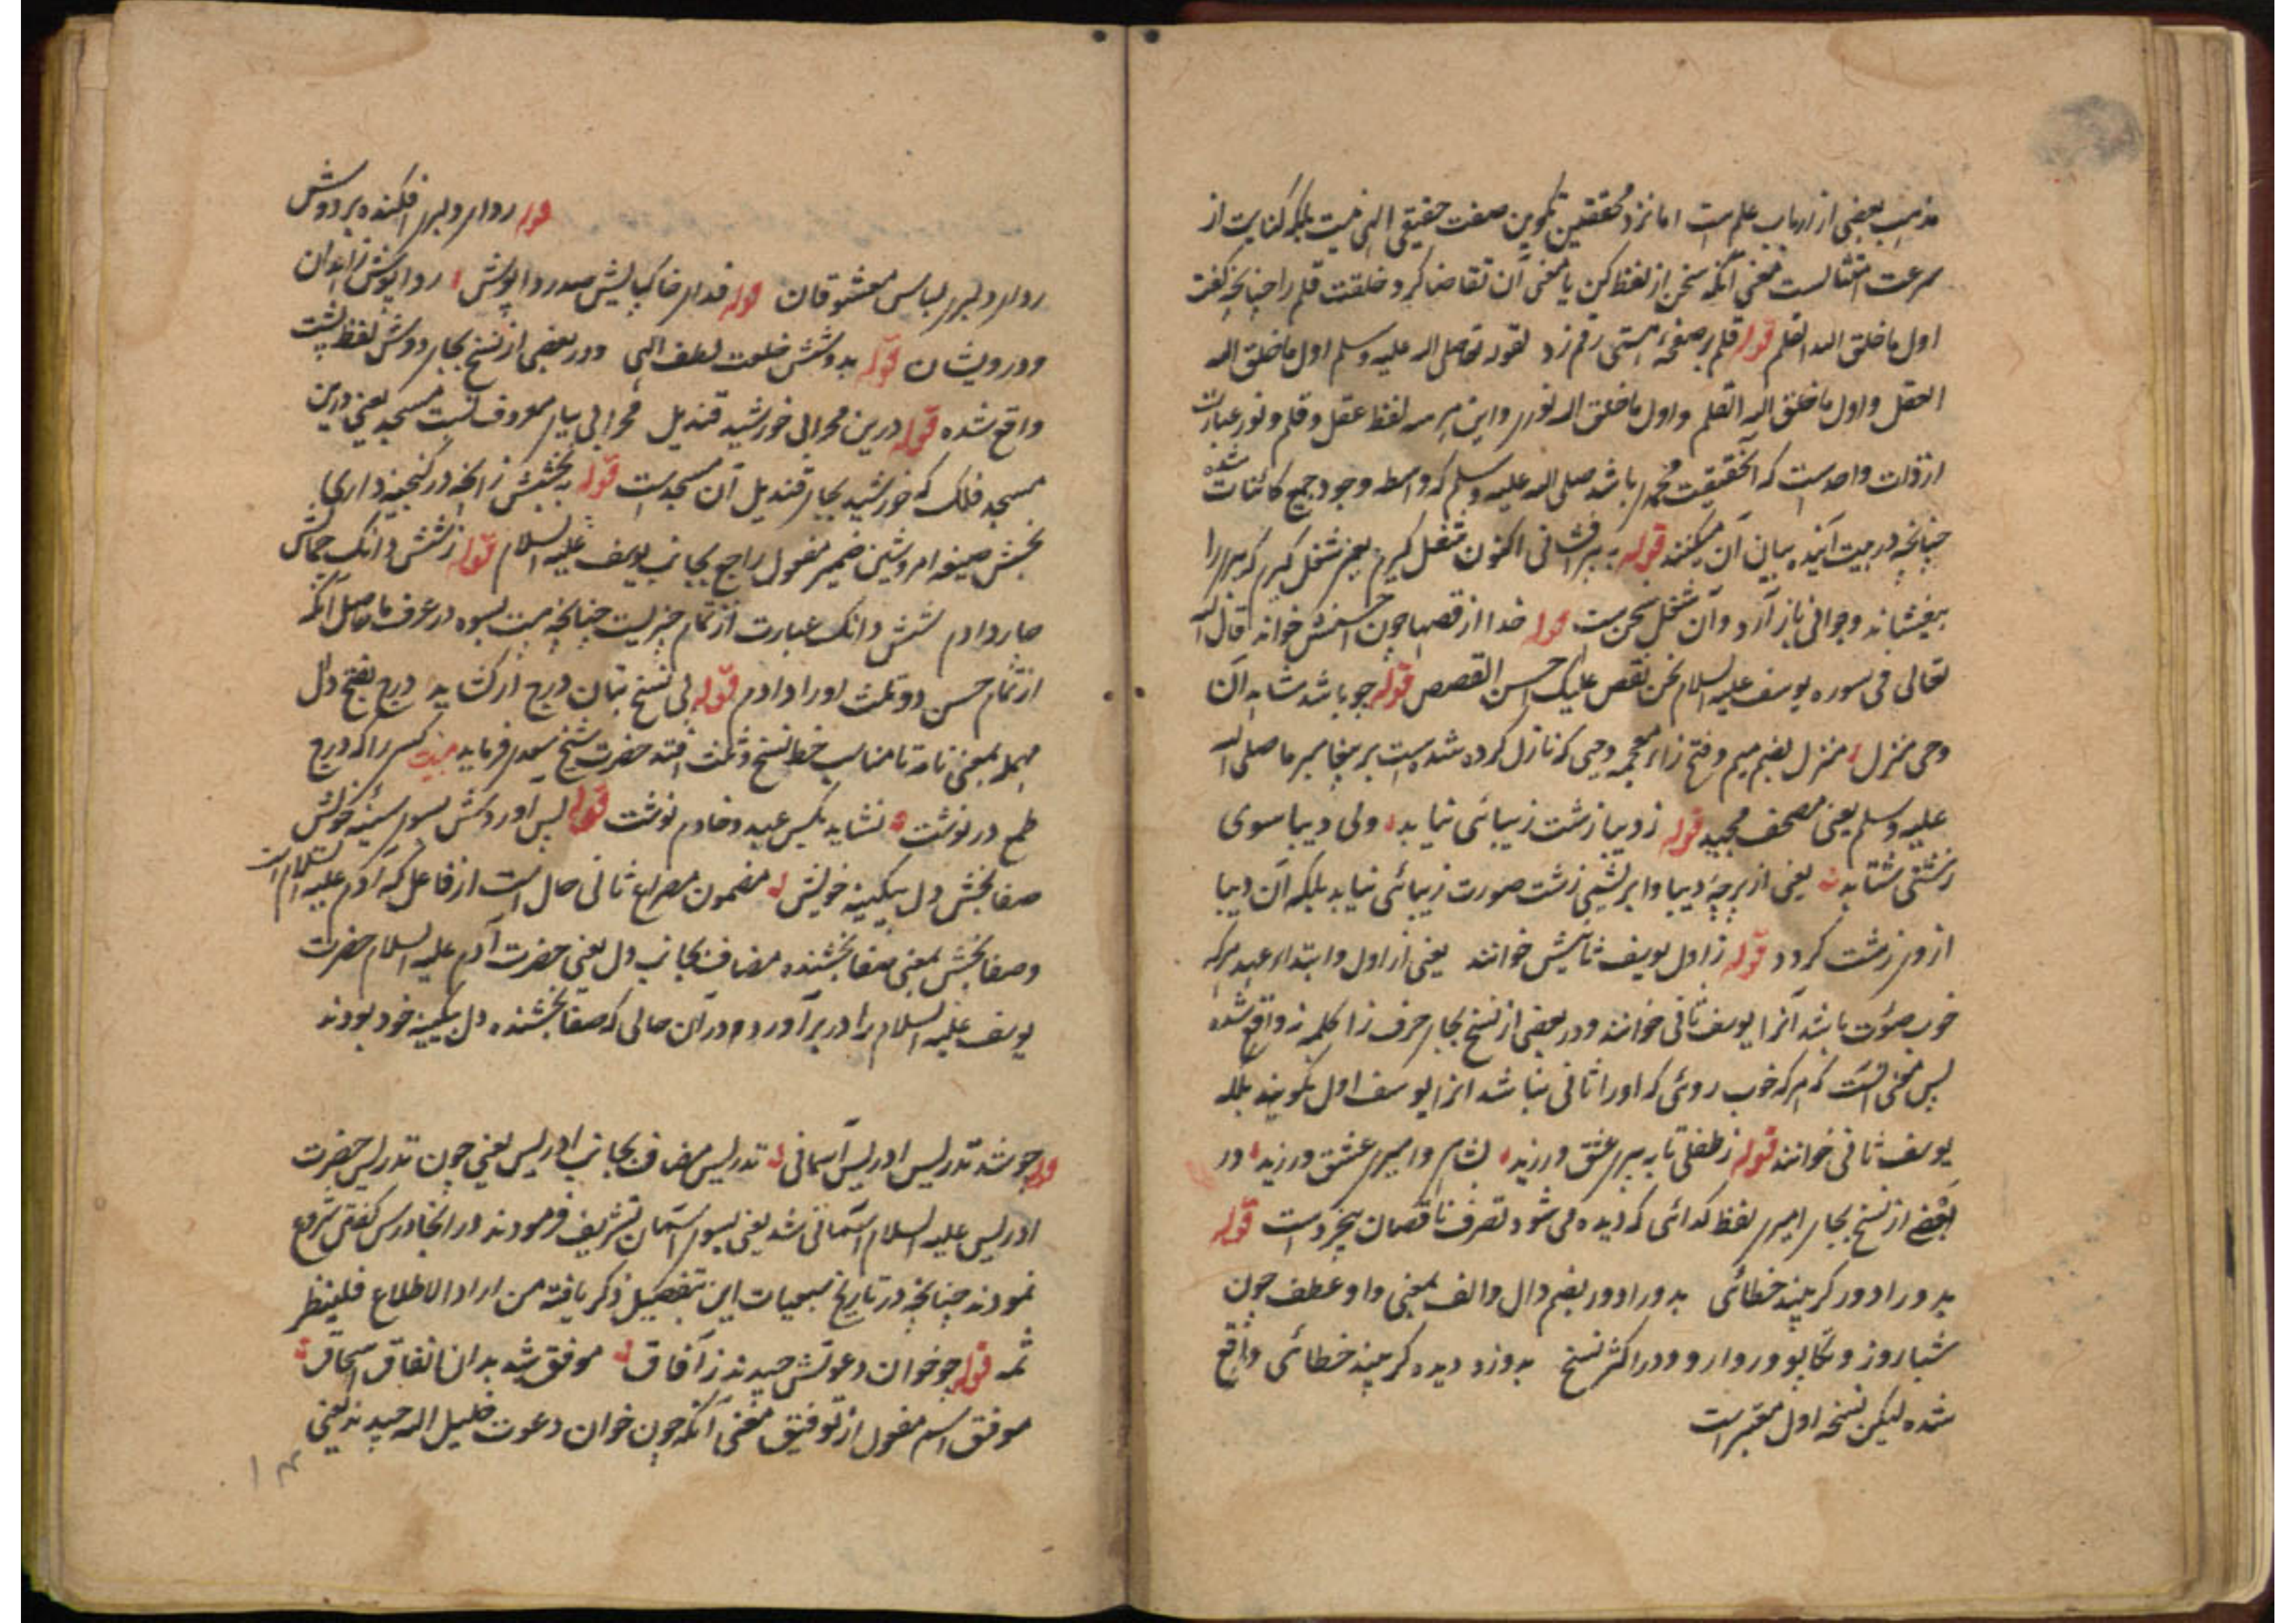 مذهب بعضی از ارباب علم است اما نزد محققین تکوین صفت حقیقی الهی نیست بلکه کنایت از
سرعت امتثالست معنی آنکه سخن از لفظ کن یا معنی آن تقاضا کرد خلقت قلم را چنانچه گفت
اول ما خلق الله القلم قوله قلم بر صفحهٔ هستی رقم زد لقوله صلی الله علیه وسلم اول ما خلق الله
العقل و اول ما خلق الله القلم و اول ما خلق الله نوری و این هر سه لفظ عقل و قلم و نور عبارت
از ذات واحد است که آنحقیقت محمدی باشد صلی الله علیه وسلم که واسطه وجود جمیع کائنات شده
چنانچه در بیت آینده بیان آن میکنند قوله به پیر افشانی اکنون شغل گیرم یعنی شغل گیرم که پیری را
بیفشاند و جوانی باز آرد و آن شغل سخن است قوله خدا از قصها چون احسنش خواند قال الله
تعالی فی سوره یوسف علیه السلام نحن نقص علیک احسن القصص قوله چو باشد شاهد آن
وحی منزل منزل بضم میم و فتح زاء معجمه وحیی که نازل کرده شده است بر پیغامبر ما صلی الله
علیه وسلم یعنی مصحف مجید قوله ز دیبا زشت زیبائی نیابد ولی دیبا سوی
زشتی شتابد یعنی از پرچهٔ دیبا و ابریشمی زشت صورت زیبائی نیابد بلکه آن دیبا
از وی زشت گردد قوله ز اول یوسف ثانیش خوانند یعنی از اول و ابتداء عهد هر که
خوب صورت باشد آنرا یوسف ثانی خوانند و در بعضی از نسخ بجای حرف زا کلمه نه واقع شده
پس معنی آنست که هر که خوب روئی که او را ثانی نباشد آنرا یوسف اول نگویند بلکه
یوسف ثانی خوانند قوله ز طفلی تا به پیری عشق ورزید بشاهی و امیری عشق ورزید در
بعضے از نسخ بجای امیری لفظ گدائی که دیده می شود تصرف ناقصان بیخرد است قوله
بدورا دور گر بیند خطائی بدورا دور بضم دال و الف بمعنی واو عطف چون
شباروز و تکاپو و رواروو و در اکثر نسخ بدوزد دیده گر بیند خطائی واقع
شده لیکن نسخه اول معتبر است
قوله ردای دلبری افکنده بر دوش
ردای دلبری لباس معشوقان قوله فدای خاکپایش صد رداپوش رداپوش زاهدان
و درویشان قوله بدوشش خلعت لطف الهی و در بعضی از نسخ بجای دوش لفظ پشت
واقع شده قوله درین محرابی خورشید قندیل محرابی بیای معروف نسبت مسجد یعنی درین
مسجد فلک که خورشید بجای قندیل آن مسجد است قوله ببخشش ز آنچه در گنجینه داری
بخش صیغه امر و شین ضمیر مفعول راجع بجانب یوسف علیه السلام قوله ز شش دانگ جمالش
چار دادم شش دانگ عبارت از تمام چیزیست چنانچه بیست بسوه در عرف ما حاصل آنکه
از تمام حسن دو ثلث او را دادم قوله پی نسخ بتان درج ار گشاید درج بفتح دال
مهمله بمعنی نامه تا مناسب خط نسخ و ثلث افتد حضرت شیخ سعدی فرماید بیت کسی را که درج
طمع در نوشت نشاید بکس عبد و خادم نوشت قوله پس آوردش بسوی سینهٔ خویش
صفا بخش دل بیکینه خویش مضمون مصراع ثانی حال است از فاعل که آدم علیه السلام است
و صفا بخش بمعنی صفا بخشنده مضاف بجانب دل یعنی حضرت آدم علیه السلام حضرت
یوسف علیه السلام را در بر آورد و در آن حالی که صفا بخشنده دل بیکینه خود بودند
قوله چو شد تدریس ادریس آسمانی تدریس مضاف بجانب ادریس یعنی چون تدریس حضرت
ادریس علیه السلام آسمانی شد یعنی بسوی آسمان تشریف فرمودند در آنجا درس گفتن شروع
نمودند چنانچه در تاریخ این بتفصیل ذکر یافته من اراد الاطلاع فلینظر
ثمه قوله چو خوان دعوتش چیدند ز آفاق موفق شد بدان انفاق اسحاق
موفق اسم مفعول از توفیق معنی آنکه چون خوان دعوت خلیل الله چیدند یعنی